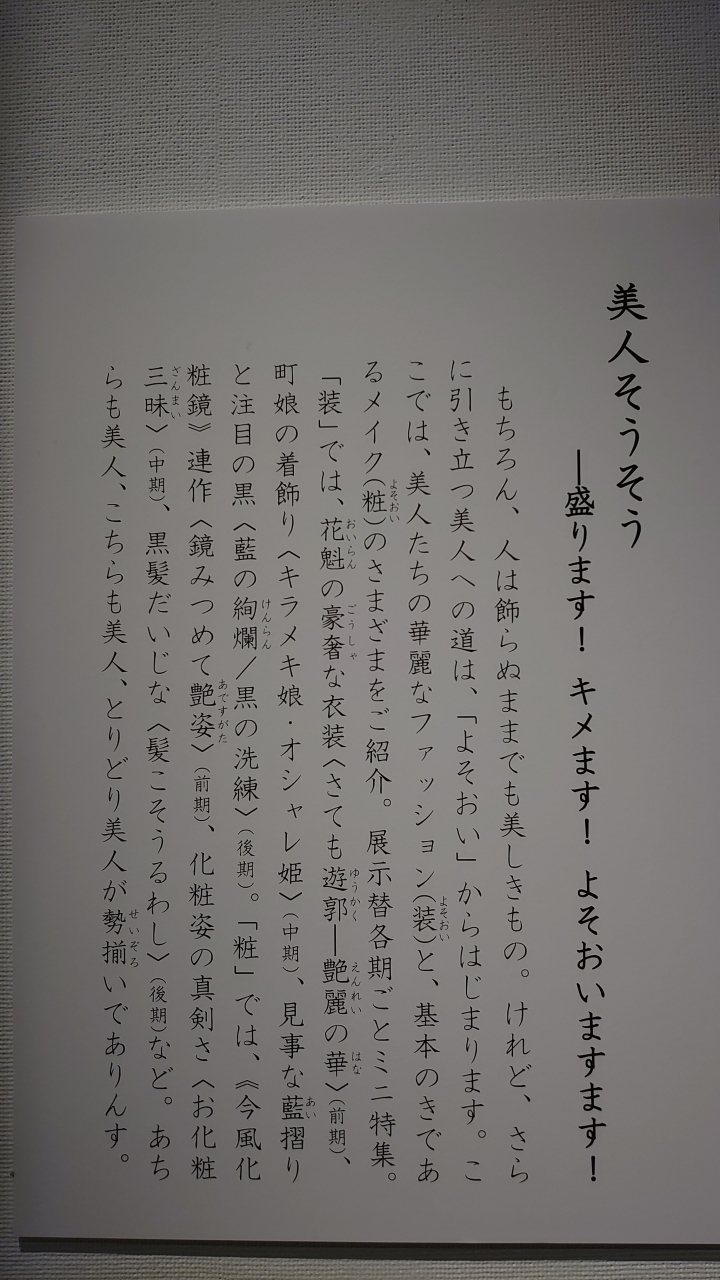 美人そうそう
―盛ります！ キメます！ よそおいますます！
もちろん、人は飾らぬままでも美しきもの。けれど、さら
に引き立つ美人への道は、「よそおい」からはじまります。こ
こでは、美人たちの華麗なファッション（装よそおい）と、基本のきであ
るメイク（粧よそおい）のさまざまをご紹介。展示替各期ごとミニ特集。
「装」では、花魁おいらんの豪奢ごうしゃな衣装〈さても遊郭ゆうかく―艶麗えんれいの華はな〉（前期）、
町娘の着飾り〈キラメキ娘・オシャレ姫〉（中期）、見事な藍あい摺り
と注目の黒〈藍の絢爛けんらん／黒の洗練〉（後期）。「粧」では、《今風化
粧鏡》連作〈鏡みつめて艶姿あですがた〉（前期）、化粧姿の真剣さ〈お化粧
三昧ざんまい〉（中期）、黒髪だいじな〈髪こそうるわし〉（後期）など。あち
らも美人、こちらも美人、とりどり美人が勢揃せいぞろいでありんす。